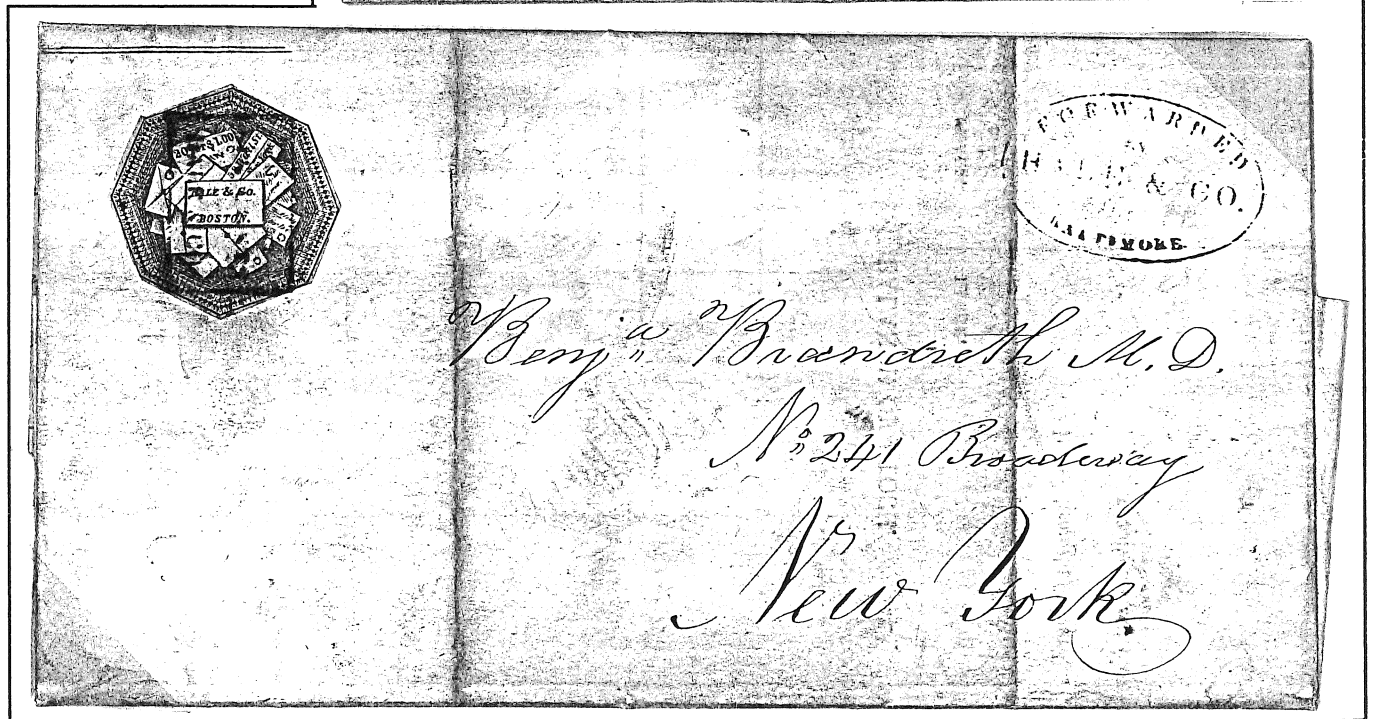 HALE & CO.
BOSTON.
FORWARDED
BY
HALE & CO.
BALTIMORE
Benjª Brandreth M.D.
Nº 241 Broadway
New York